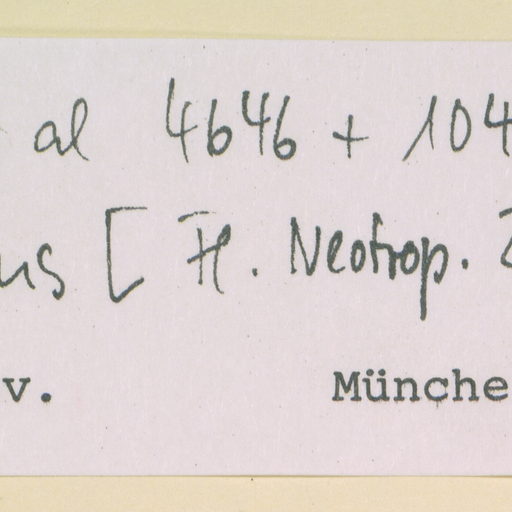 al 4646 + 104
us [ Fl. Neotrop. 2
v. Münche